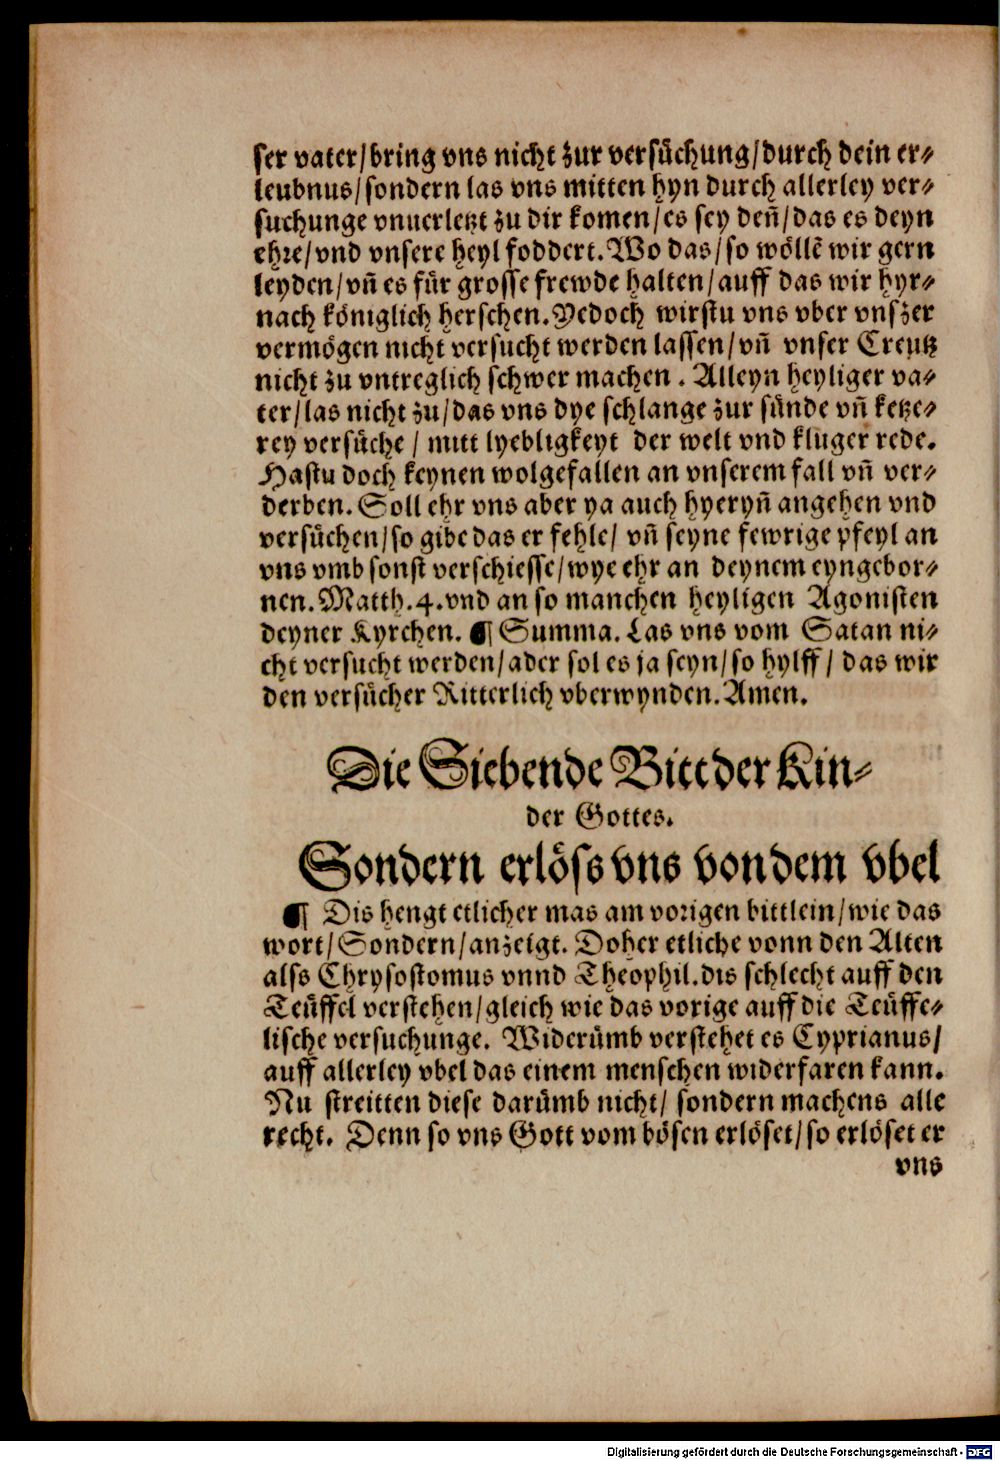 ser vater/bring vns nicht zur versůchung/durch dein er⸗
leubnus/sondern las vns mitten hyn durch allerley ver⸗
suchunge vnuerletzt zu dir komen/es sey deñ/das es deyn
ehre/vnd vnsere heyl foddert. Wo das/so wöllẽ wir gern
leyden/vñ es für grosse frewde halten/auff das wir hyr⸗
nach königlich herschen. Yedoch wirstu vns vber vnszer
vermögen nicht versucht werden lassen/vñ vnser Creutz
nicht zu vntreglich schwer machen. Alleyn heyliger va⸗
ter/las nicht zu/das vns dye schlange zur sünde vñ ketze⸗
rey versůche/mitt lyebligkeyt der welt vnd kluger rede.
Hastu doch keynen wolgefallen an vnserem fall vñ ver⸗
derben. Soll ehr vns aber ya auch hyeryñ angehen vnd
versůchen/so gibe das er fehle/ vñ seyne fewrige pfeyl an
vns vmb sonst verschiesse/wye ehr an deynem eyngebor⸗
nen. Matth. 4. vnd an so manchen heyligen Agonisten
deyner Kyrchen. ¶ Summa. Las vns vom Satan ni⸗
cht versucht werden/ader sol es ja seyn/so hylff/ das wir
den versůcher Ritterlich vberwynden. Amen.
Die Siebende Bitt der Kin⸗
der Gottes.
Sondern erlöss vns von dem vbel
¶ Dis hengt etlicher mas am vorigen bittlein/wie das
wort/Sondern/anzeigt. Doher etliche vonn den Alten
alss Chrysostomus vnnd Theophil. dis schlecht auff den
Teüffel verstehen/gleich wie das vorige auff die Teüffe⸗
lische versuchunge. Widerümb verstehet es Cyprianus/
auff allerley vbel das einem menschen widerfaren kann.
Nu streitten diese darümb nicht/ sondern machens alle
recht. Denn so vns Gott vom bösen erlöset/so erlöset er
vns
Digitalisierung gefördert durch die Deutsche Forschungsgemeinschaft - DFG